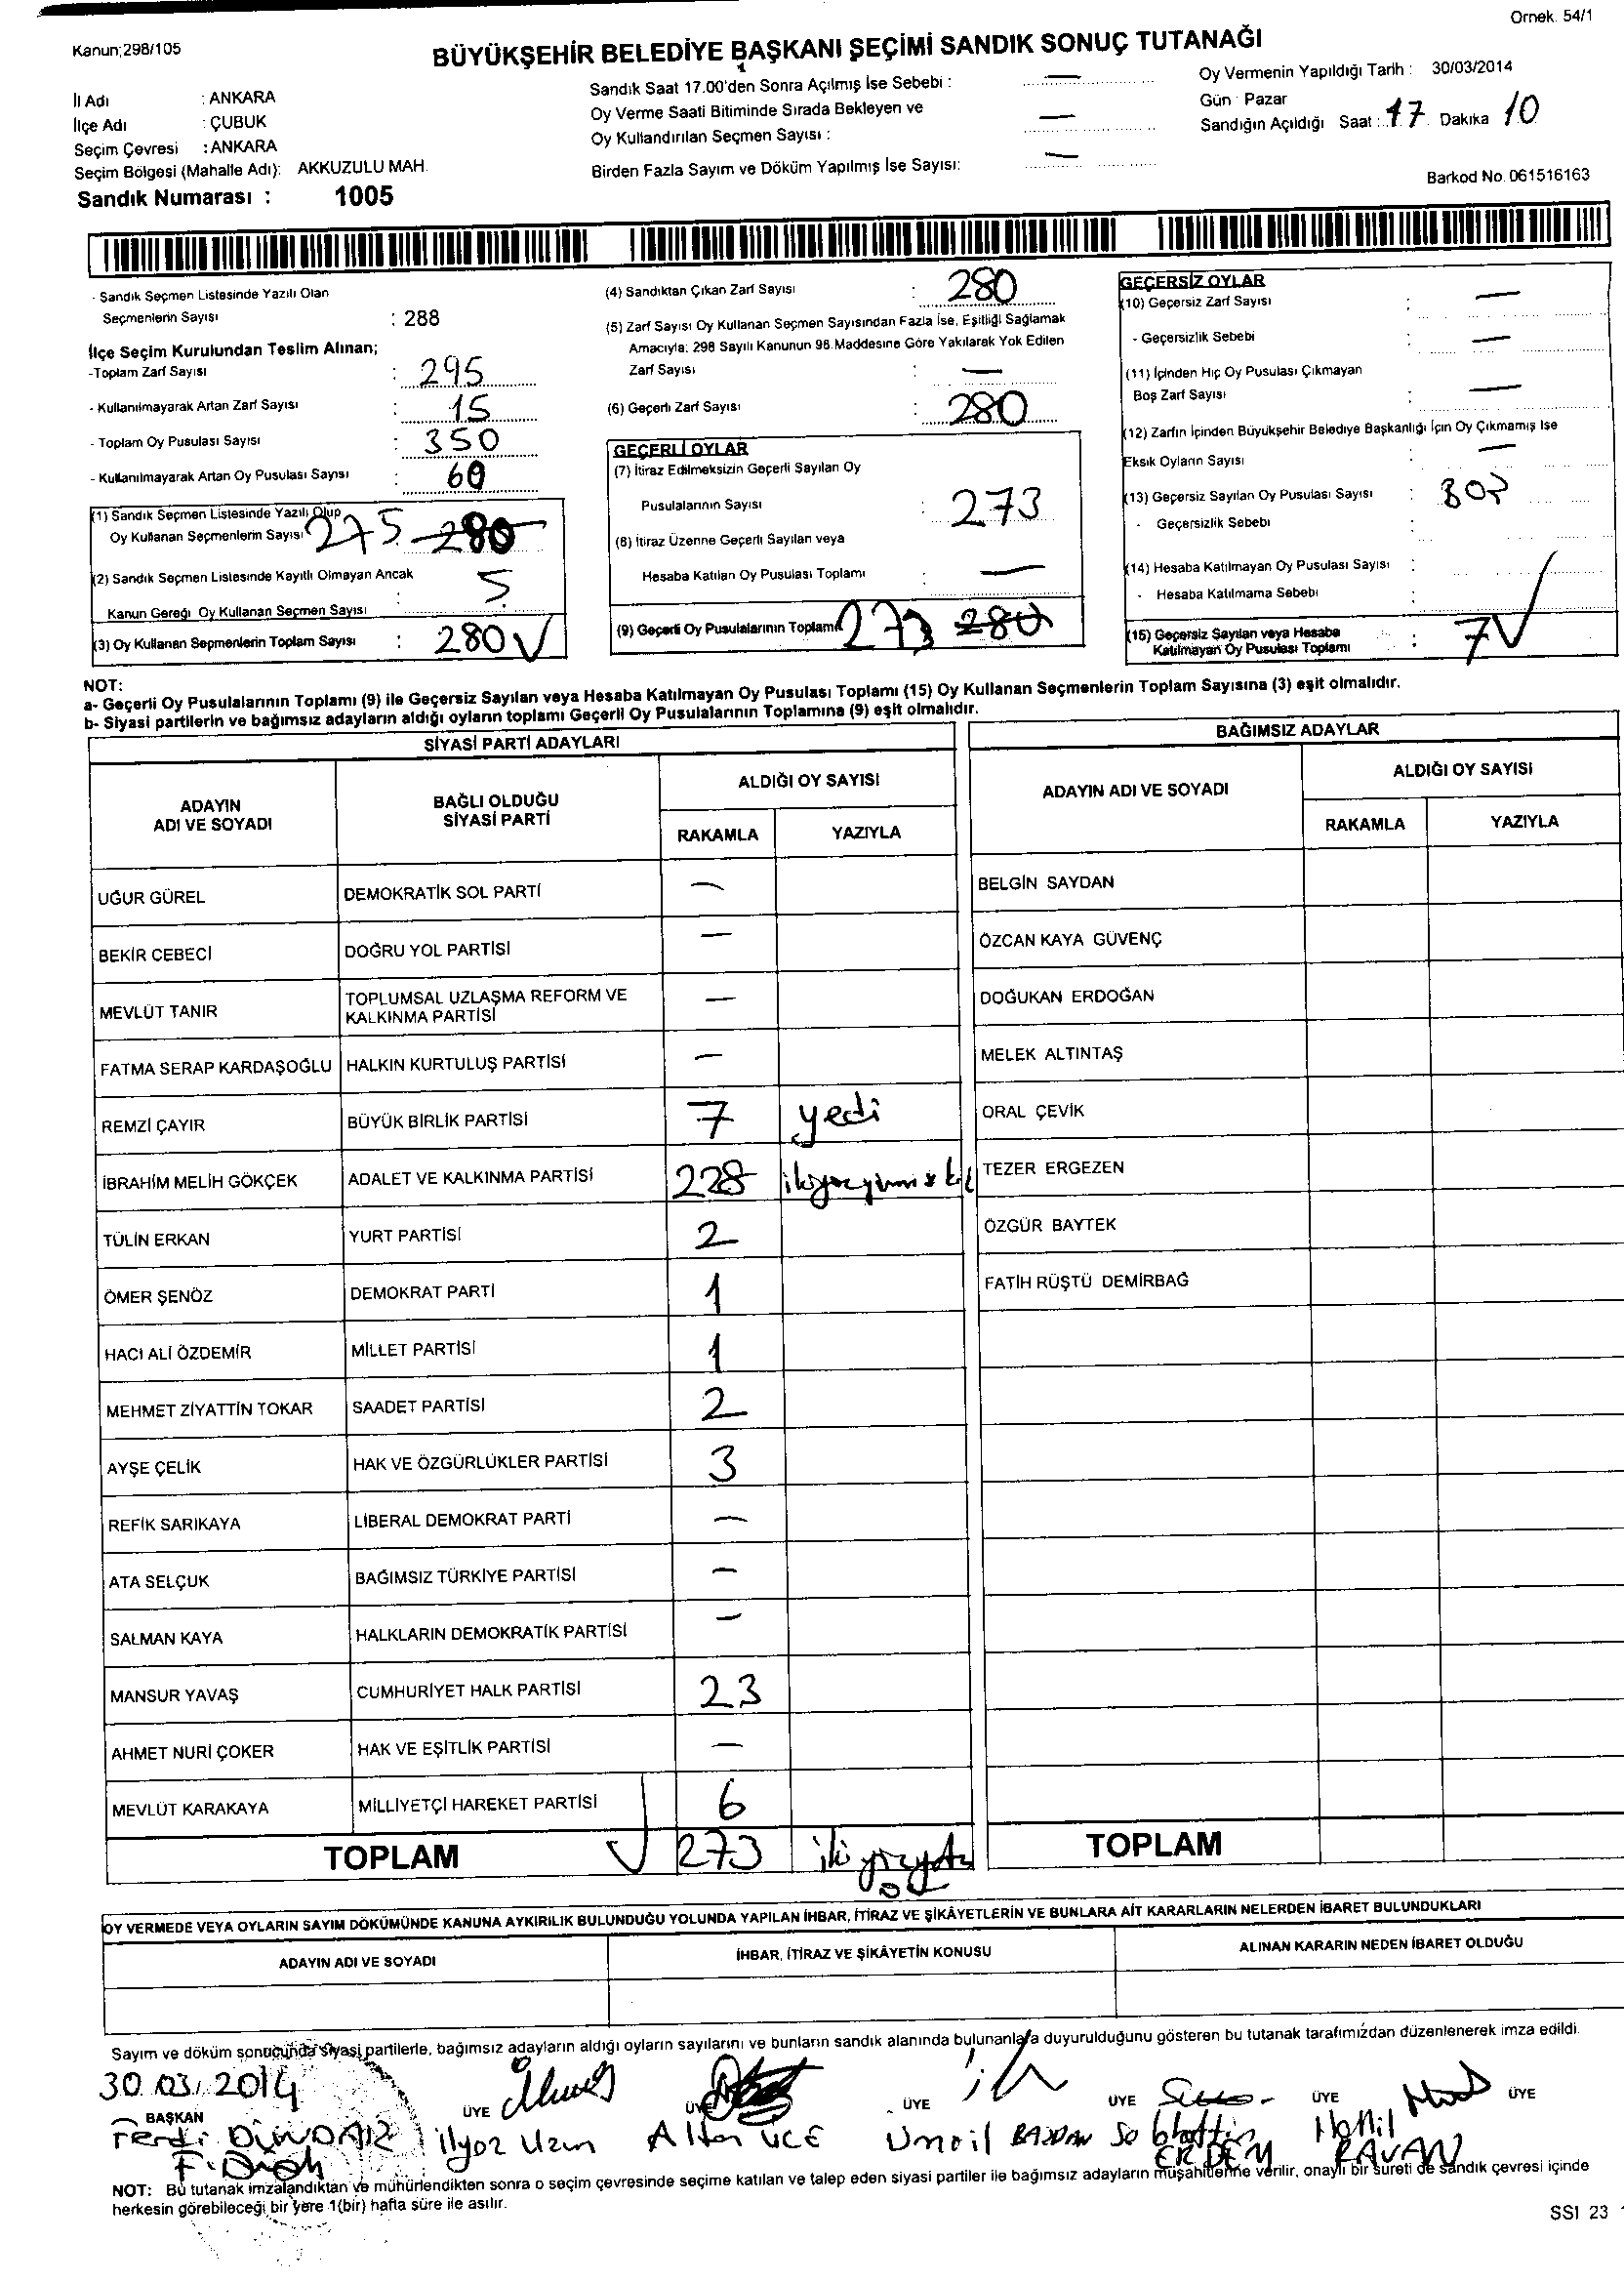 Ornek. 54/1
Kanun;298/105
BÜYÜKŞEHİR BELEDİYE BAŞKANI SEÇİMİ SANDIK SONUÇ TUTANAĞI
İl Adı : ANKARA
İlçe Adı : ÇUBUK
Seçim Çevresi : ANKARA
Seçim Bölgesi (Mahalle Adı): AKKUZULU MAH.
Sandık Numarası : 1005
Sandık Saat 17.00'den Sonra Açılmış İse Sebebi : —
Oy Verme Saati Bitiminde Sırada Bekleyen ve
Oy Kullandırılan Seçmen Sayısı : —
Birden Fazla Sayım ve Döküm Yapılmış İse Sayısı: —
Oy Vermenin Yapıldığı Tarih : 30/03/2014
Gün : Pazar
Sandığın Açıldığı Saat : 17 Dakika 10
Barkod No. 061516163
- Sandık Seçmen Listesinde Yazılı Olan
Seçmenlerin Sayısı : 288
İlçe Seçim Kurulundan Teslim Alınan;
-Toplam Zarf Sayısı : 295
- Kullanılmayarak Artan Zarf Sayısı : 15
- Toplam Oy Pusulası Sayısı : 350
- Kullanılmayarak Artan Oy Pusulası Sayısı : 60
(1) Sandık Seçmen Listesinde Yazılı Olup
Oy Kullanan Seçmenlerin Sayısı 275 280
(2) Sandık Seçmen Listesinde Kayıtlı Olmayan Ancak
Kanun Gereği Oy Kullanan Seçmen Sayısı : 5
(3) Oy Kullanan Seçmenlerin Toplam Sayısı : 280
(4) Sandıktan Çıkan Zarf Sayısı : 280
(5) Zarf Sayısı Oy Kullanan Seçmen Sayısından Fazla İse, Eşitliği Sağlamak
Amacıyla; 298 Sayılı Kanunun 98.Maddesine Göre Yakılarak Yok Edilen
Zarf Sayısı : —
(6) Geçerli Zarf Sayısı : 280
GEÇERLİ OYLAR
(7) İtiraz Edilmeksizin Geçerli Sayılan Oy
Pusulalarının Sayısı : 273
(8) İtiraz Üzerine Geçerli Sayılan veya
Hesaba Katılan Oy Pusulası Toplamı : —
(9) Geçerli Oy Pusulalarının Toplamı 273 280
GEÇERSİZ OYLAR
(10) Geçersiz Zarf Sayısı : —
- Geçersizlik Sebebi : —
(11) İçinden Hiç Oy Pusulası Çıkmayan
Boş Zarf Sayısı : —
(12) Zarfın İçinden Büyükşehir Belediye Başkanlığı İçin Oy Çıkmamış İse
Eksik Oyların Sayısı : —
(13) Geçersiz Sayılan Oy Pusulası Sayısı :
- Geçersizlik Sebebi :
(14) Hesaba Katılmayan Oy Pusulası Sayısı :
- Hesaba Katılmama Sebebi :
(15) Geçersiz Sayılan veya Hesaba
Katılmayan Oy Pusulası Toplamı : 7
NOT:
a- Geçerli Oy Pusulalarının Toplamı (9) ile Geçersiz Sayılan veya Hesaba Katılmayan Oy Pusulası Toplamı (15) Oy Kullanan Seçmenlerin Toplam Sayısına (3) eşit olmalıdır.
b- Siyasi partilerin ve bağımsız adayların aldığı oyların toplamı Geçerli Oy Pusulalarının Toplamına (9) eşit olmalıdır.
SİYASİ PARTİ ADAYLARI
ADAYIN ADI VE SOYADI BAĞLI OLDUĞU SİYASİ PARTİ ALDIĞI OY SAYISI RAKAMLA YAZIYLA
UĞUR GÜREL DEMOKRATİK SOL PARTİ —
BEKİR CEBECİ DOĞRU YOL PARTİSİ —
MEVLÜT TANIR TOPLUMSAL UZLAŞMA REFORM VE KALKINMA PARTİSİ —
FATMA SERAP KARDAŞOĞLU HALKIN KURTULUŞ PARTİSİ —
REMZİ ÇAYIR BÜYÜK BİRLİK PARTİSİ 7 yedi
İBRAHİM MELİH GÖKÇEK ADALET VE KALKINMA PARTİSİ 228
TÜLİN ERKAN YURT PARTİSİ 2
ÖMER ŞENÖZ DEMOKRAT PARTİ 1
HACI ALİ ÖZDEMİR MİLLET PARTİSİ 1
MEHMET ZİYATTİN TOKAR SAADET PARTİSİ 2
AYŞE ÇELİK HAK VE ÖZGÜRLÜKLER PARTİSİ 3
REFİK SARIKAYA LİBERAL DEMOKRAT PARTİ —
ATA SELÇUK BAĞIMSIZ TÜRKİYE PARTİSİ —
SALMAN KAYA HALKLARIN DEMOKRATİK PARTİSİ —
MANSUR YAVAŞ CUMHURİYET HALK PARTİSİ 23
AHMET NURİ ÇOKER HAK VE EŞİTLİK PARTİSİ —
MEVLÜT KARAKAYA MİLLİYETÇİ HAREKET PARTİSİ 6
TOPLAM 273
BAĞIMSIZ ADAYLAR
ADAYIN ADI VE SOYADI ALDIĞI OY SAYISI RAKAMLA YAZIYLA
BELGİN SAYDAN
ÖZCAN KAYA GÜVENÇ
DOĞUKAN ERDOĞAN
MELEK ALTINTAŞ
ORAL ÇEVİK
TEZER ERGEZEN
ÖZGÜR BAYTEK
FATİH RÜŞTÜ DEMİRBAĞ
TOPLAM
OY VERMEDE VEYA OYLARIN SAYIM DÖKÜMÜNDE KANUNA AYKIRILIK BULUNDUĞU YOLUNDA YAPILAN İHBAR, İTİRAZ VE ŞİKÂYETLERİN VE BUNLARA AİT KARARLARIN NELERDEN İBARET BULUNDUKLARI
ADAYIN ADI VE SOYADI İHBAR, İTİRAZ VE ŞİKÂYETİN KONUSU ALINAN KARARIN NEDEN İBARET OLDUĞU
Sayım ve döküm sonucunda siyasi partilerle, bağımsız adayların aldığı oyların sayılarını ve bunların sandık alanında bulunanlara duyurulduğunu gösteren bu tutanak tarafımızdan düzenlenerek imza edildi.
30.03.2014
BAŞKAN ÜYE ÜYE ÜYE ÜYE ÜYE ÜYE
ilyaz Uzun
ERDEM
NOT: Bu tutanak imzalandıktan ve mühürlendikten sonra o seçim çevresinde seçime katılan ve talep eden siyasi partiler ile bağımsız adayların müşahitlerine verilir, onaylı bir sureti de sandık çevresi içinde
herkesin görebileceği bir yere 1(bir) hafta süre ile asılır.
SSI 23